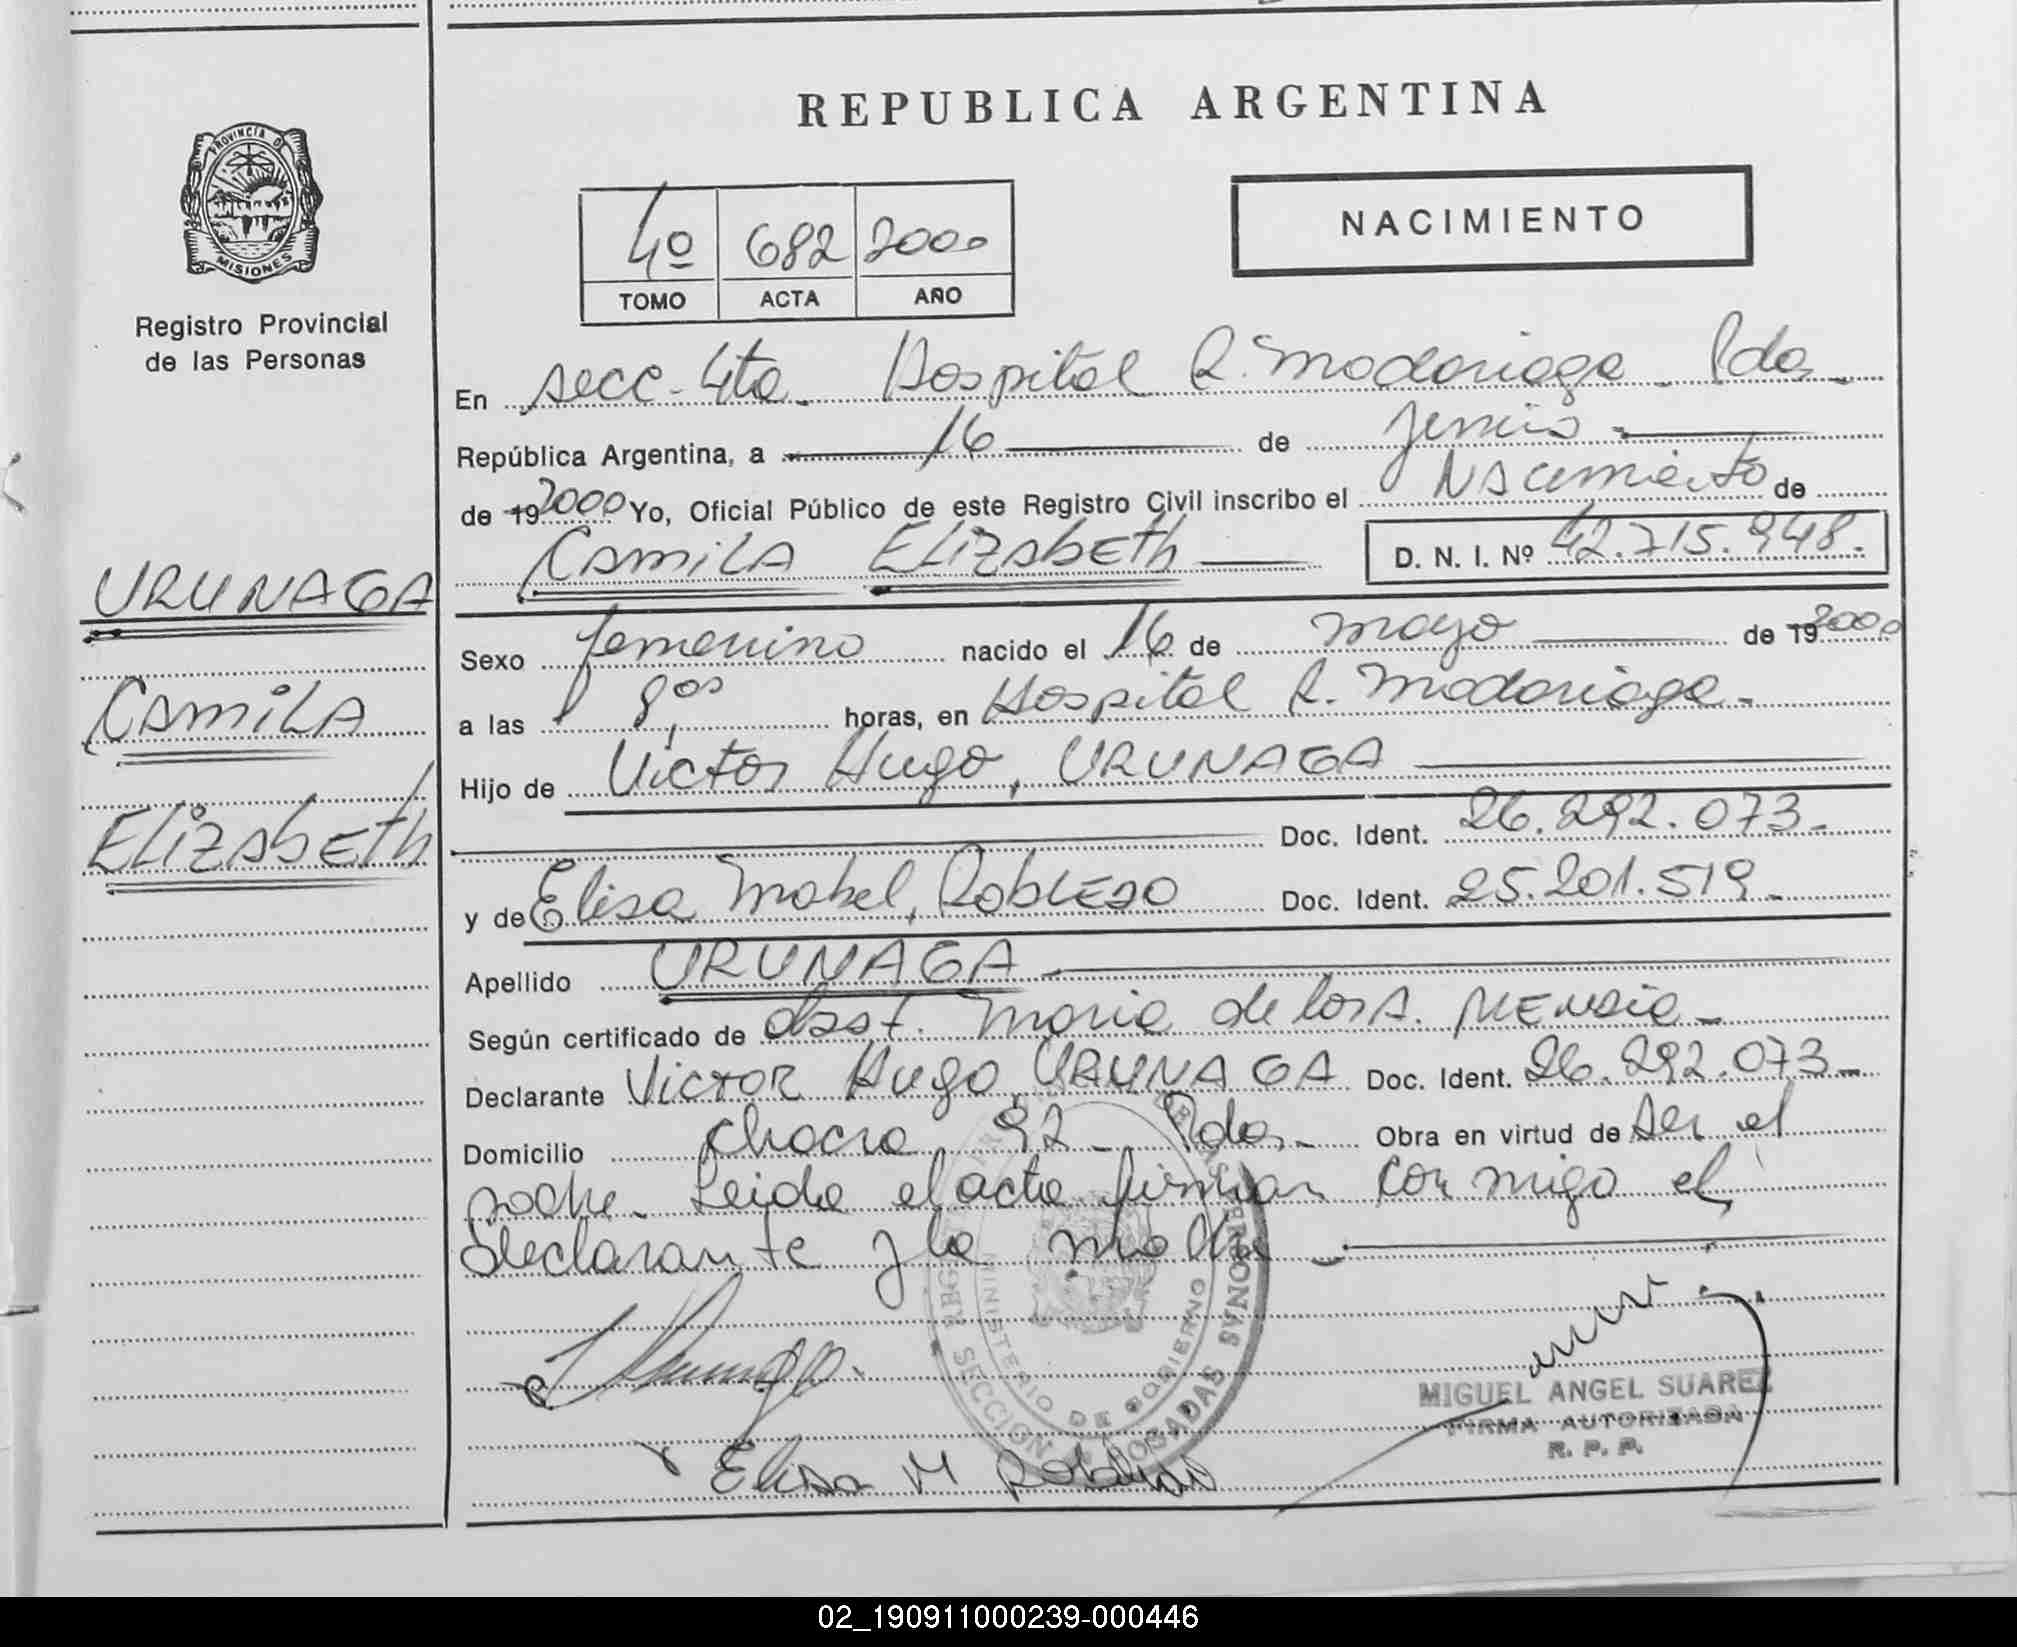 REPUBLICA ARGENTINA
PROVINCIA DE
MISIONES
Registro Provincial
de las Personas
4º 682 2000
TOMO ACTA AÑO
NACIMIENTO
En secc. 4ta. Hospital R. Madariaga. Pdas.
República Argentina, a 16 de junio
de 19 2000 Yo, Oficial Público de este Registro Civil inscribo el Nacimiento de
Camila Elizabeth D. N. I. Nº 42.715.948.
URUNAGA
Camila
Elizabeth
Sexo femenino nacido el 16 de mayo de 19 2000
a las 8,00 horas, en Hospital R. Madariaga.
Hijo de Victor Hugo, URUNAGA
Doc. Ident. 26.292.073.
y de Elisa Mabel, Robledo Doc. Ident. 25.201.519.
Apellido URUNAGA
Según certificado de obst. Maria de los A.
Declarante Victor Hugo URUNAGA Doc. Ident. 26.292.073.
Domicilio chacra 92 Pdas. Obra en virtud de ser el
padre. Leida el acta firman conmigo el
declarante y la madre
Elisa M Robledo
MINISTERIO DE GOBIERNO
SECCION
MIGUEL ANGEL SUAREZ
FIRMA AUTORIZADA
R. P. P.
02_190911000239-000446